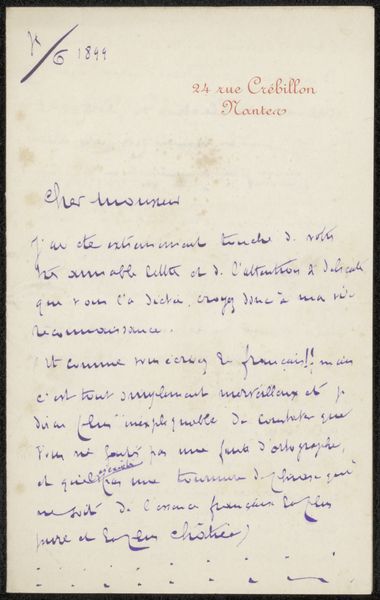 6 1899
24 rue Crébillon
Nantes
Cher Monsieur
J'ai été extrêmement touché de votre
très aimable lettre et de l'attention si délicate
que vous l'a dictée, croyez donc à ma vive
reconnaissance.
Et comme vous écrivez le français!! mais
c'est tout simplement merveilleux et je
dirai plus "inexplicable" de constater que
vous ne faites pas une faute d'ortographe,
et qu'il pas une tournure de phrase qui
ne soit de l'essence française la plus
pure et la plus châtiée)